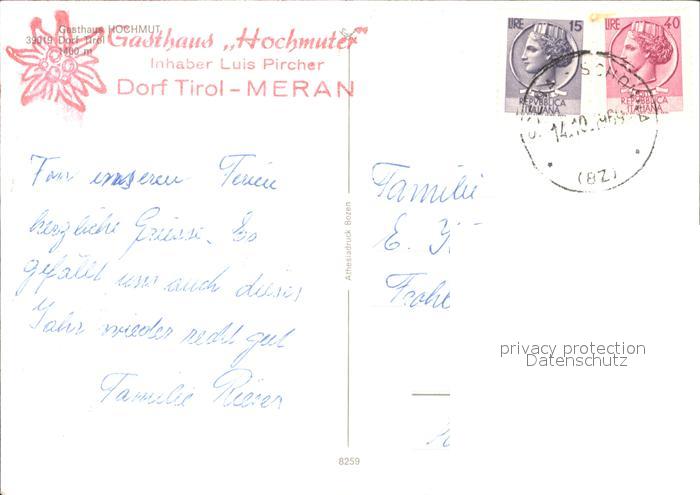 Gasthaus HOCHMUT
39019 Dorf Tirol
1400 m
Gasthaus „Hochmuter"
Inhaber Luis Pircher
Dorf Tirol - MERAN
LIRE 15
REPVBBLICA
ITALIANA
LIRE 40
REPVBBLICA
ITALIANA
14.10.
(BZ)
Von unseren Ferien
herzliche Grüsse. Es
gefällt uns auch dieses
Jahr wieder recht gut
Familie
Athesiadruck Bozen
Familie
E.
privacy protection
Datenschutz
8259